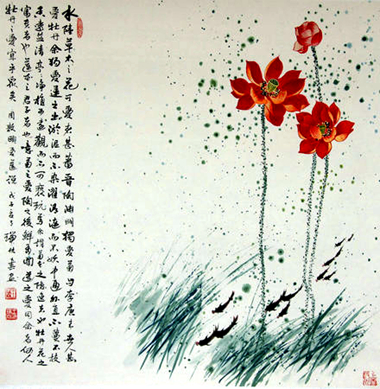 水陸草木之花可愛者甚蕃晉陶淵明獨愛菊自李唐來世人甚
愛牡丹余獨愛蓮之出淤泥而不染濯清漣而不妖中通外直不蔓不枝
香遠益清亭亭淨植可遠觀而不可褻玩焉余謂菊花之隱逸者也牡丹花之
富貴者也蓮花之君子者也噫菊之愛陶後鮮有聞蓮之愛同余者何人
牡丹之愛宜乎衆矣 周敦頤愛蓮說